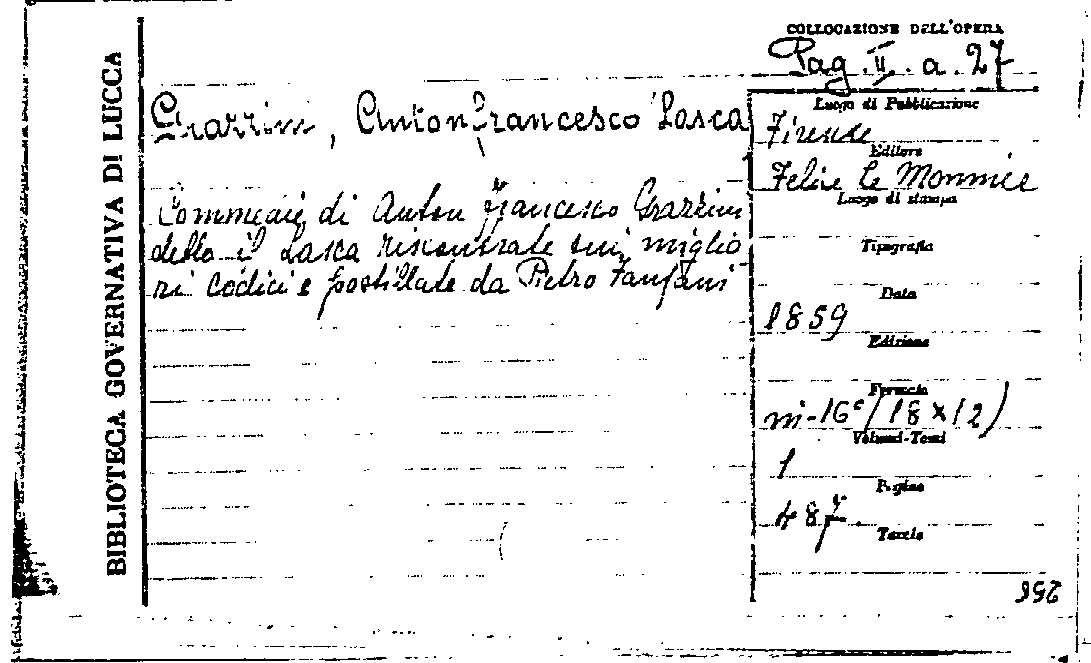 BIBLIOTECA GOVERNATIVA DI LUCCA
COLLOCAZIONE DELL'OPERA
Pag. II. a. 27
Grazzini, Anton Francesco Lasca
Commedie di Anton Francesco Grazzini
detto il Lasca riscontrate sui miglio
ri codici e postillate da Pietro Fanfani
Luogo di Pubblicazione
Firenze
Editore
Felice Le Monnier
Luogo di stampa
Tipografia
Data
1859
Edizione
Formato
in-16º (18 x 12)
Volumi-Tomi
1
Pagine
487.
Tavole
256